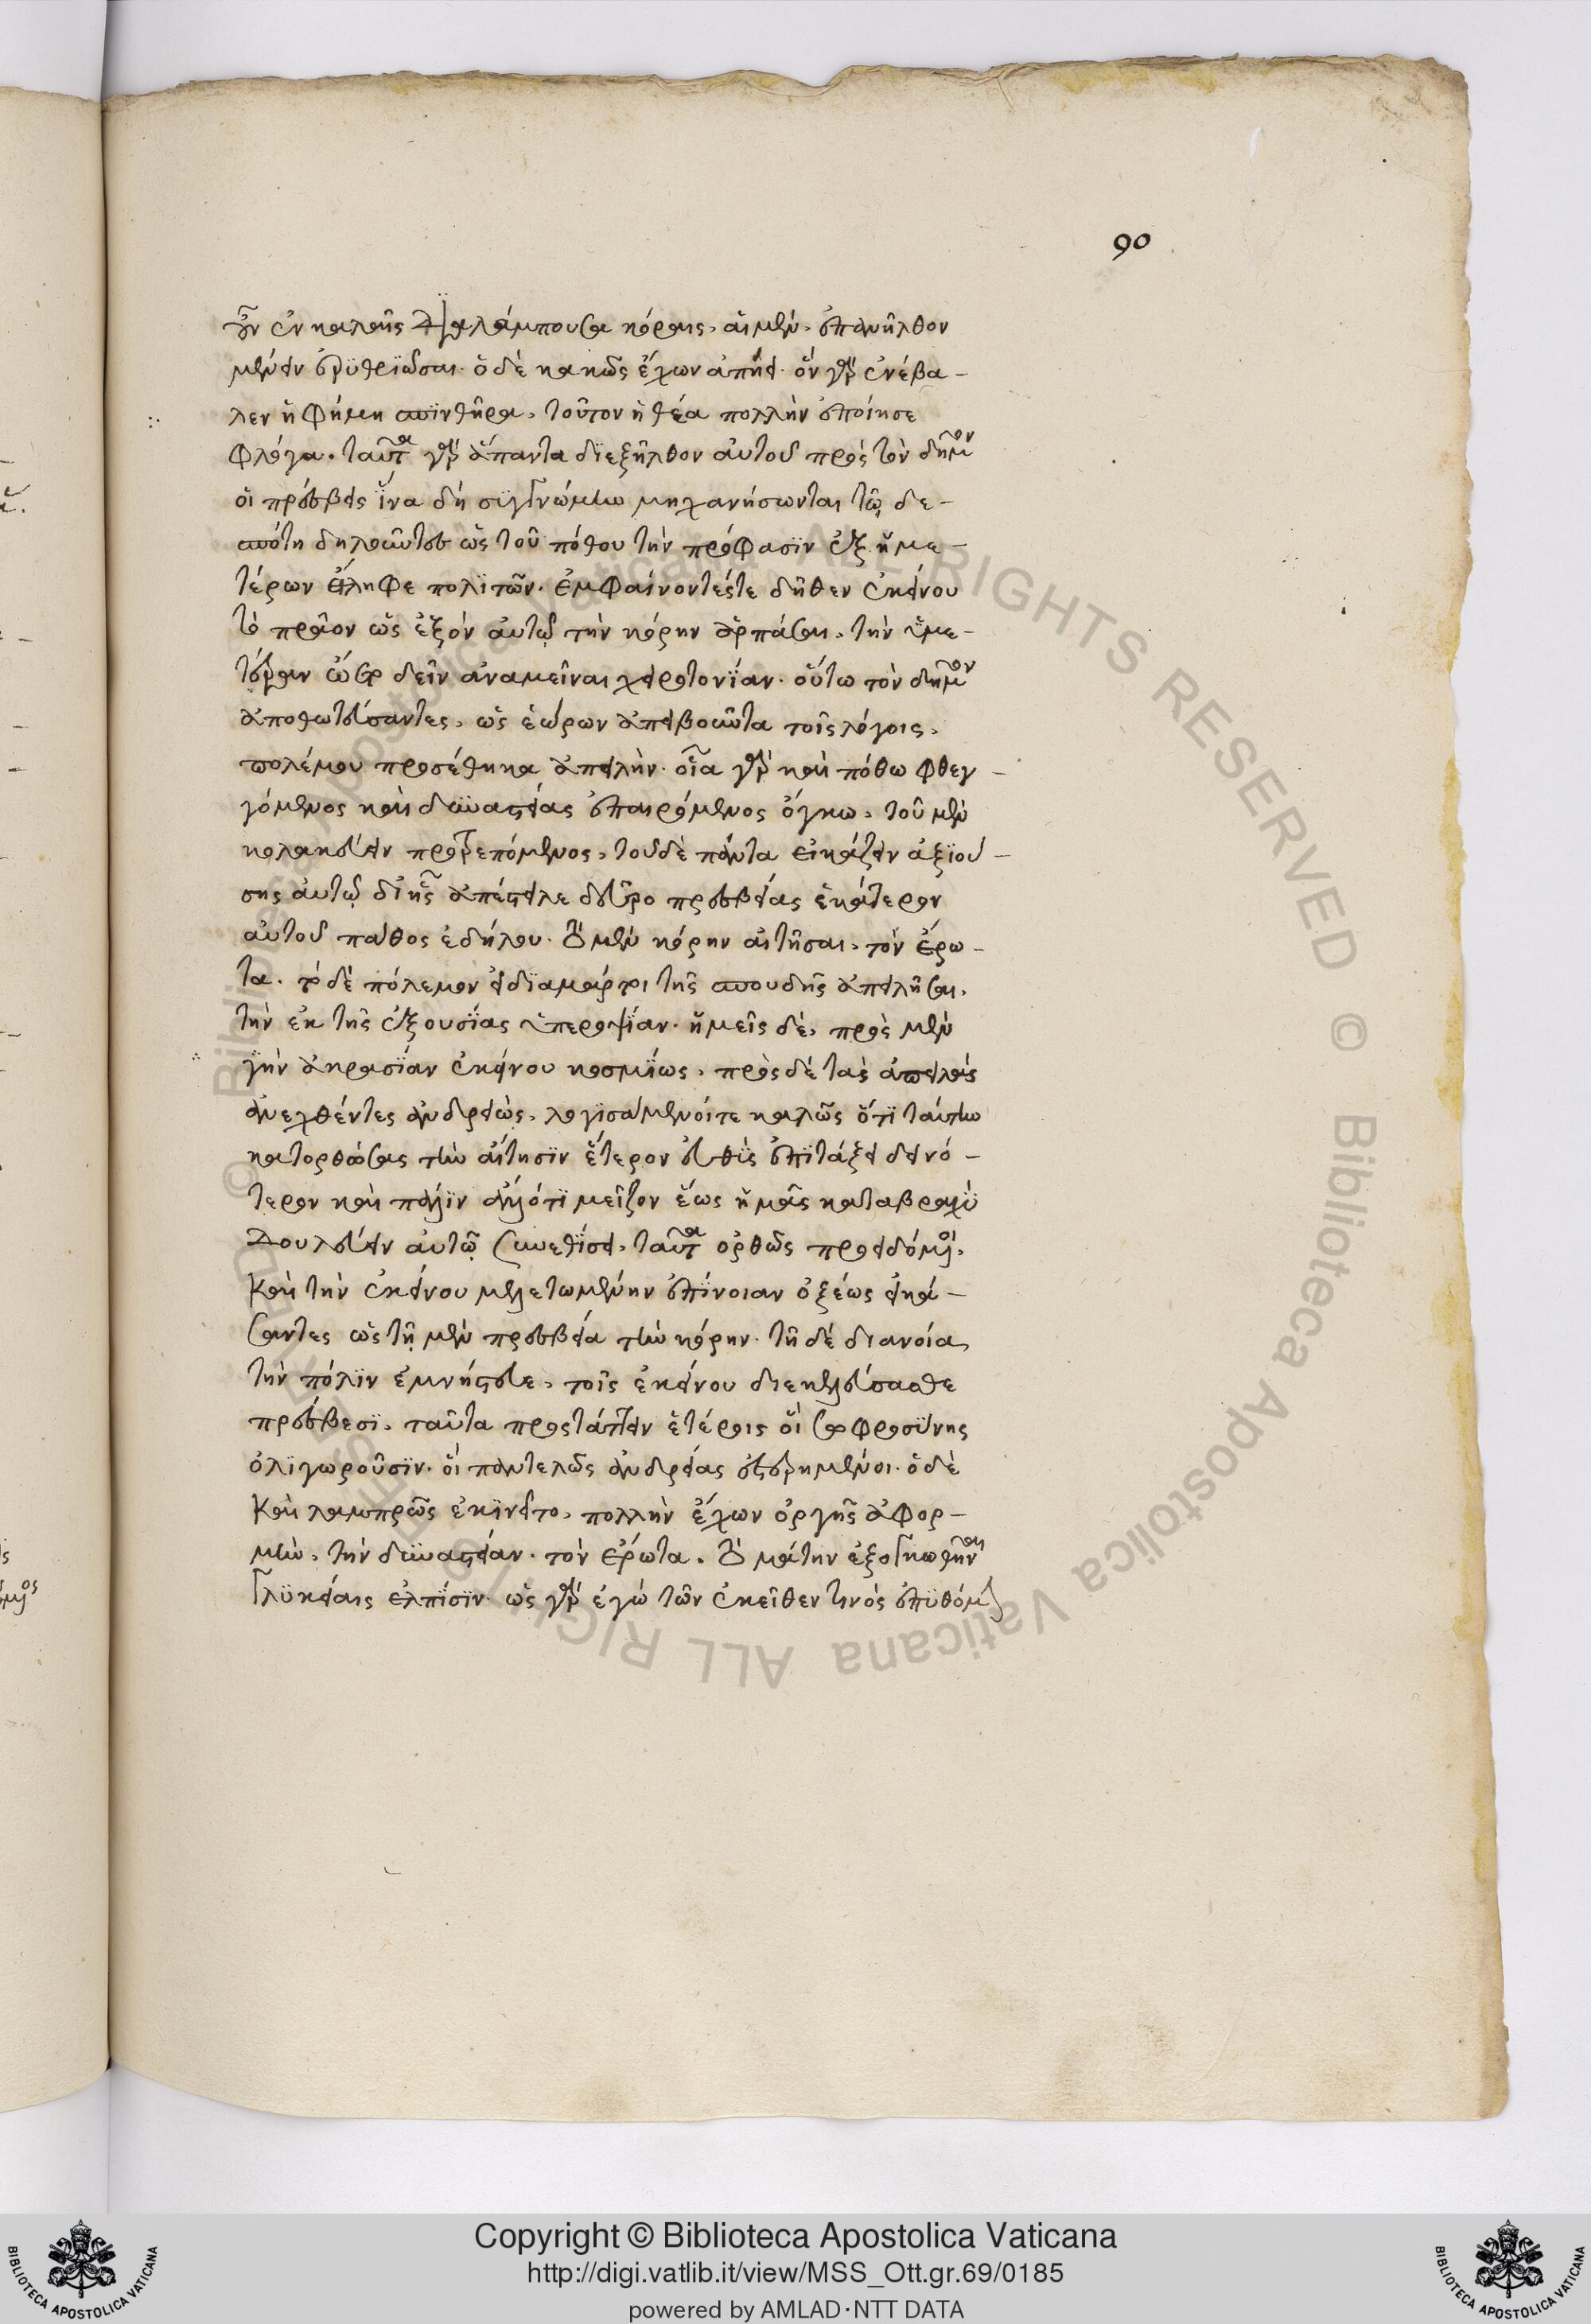 90
οὖν ἐν καλαῖς διαλάμπουσα κόραις. αἱ μὲν, ἐπανῆλθον
μένειν ἐρϋθριῶσαι. ὁ δὲ κακῶς ἔχων ἀπῄει. ὃν γὰρ ἐνέβα-
λεν ἡ φήμη σπϊνθῆρα, τοῦτον ἡ θέα πολλὴν ἐποίησε
φλόγα. ταῦτα γὰρ ἅπαντα διεξῆλθον αὐτοῦ πρὸς τὸν δῆμον
οἱ πρέσβεις ἵνα δὴ συγγνώμην μηχανήσωνται τῷ δε-
σπότη δηλοῦντες ὡς τοῦ πόθου τὴν πρόφασϊν ἐξ ἡμε-
τέρων εἴληφε πολιτῶν. ἐμφαίνοντές τε δῆθεν ἐκείνου
τὸ πρᾶον ὡς ἐξὸν αὐτῷ τὴν κόρην ἁρπάσαι, τὴν ὑμε-
τέραν ὤετο δεῖν ἀναμεῖναι χειροτονΐαν. οὕτω τὸν δῆμον
ὑποθωπεύσαντες, ὡς ἑώρων ἐπιβοῶντα τοῖς λόγοις,
πολέμου προσέθηκαν ἀπειλὴν. οἷα γὰρ καὶ πόθω φθεγ-
γόμενος καὶ δυναστείας ἐπαιρόμενος ὄγκω, τοῦ μὲν
κολακεύειν προτρεπόμενος, τοῦ δὲ πάντα εἰκάζειν ἀξιού-
σης αὐτῷ δι' ἧς ἀπέστειλε δεῦρο πρεσβείας ἑκάτερον
αὐτοῦ πάθος ἐδήλου. τὸ μὲν κόρην αἰτῆσαι, τὸν ἔρω-
τα. τὸ δὲ πόλεμον εἰ διαμάρτοι τῆς σπουδῆς ἀπειλῆσαι,
τὴν ἐκ τῆς ἐξουσίας ὑπεροψίαν. ἡμεῖς δὲ, πρὸς μὲν
τὴν ἀκρασΐαν ἐκείνου κοσμίως, πρὸς δὲ τὰς ἀπειλὰς
ἀνεχθέντες ἀνδρείως, λογϊσάμενοί τε καλῶς ὅτϊ ταύτην
κατορθώσας τὴν αἴτησϊν ἕτερον εὐθὺς ἐπϊτάξει δεινό-
τερον καὶ πάλϊν ἄλλό τϊ μεῖζον ἕως ἡμᾶς καταβραχὺ
δουλεύειν αὐτῷ συνεθΐσει, ταῦτα ὀρθῶς προειδόμενοι,
καὶ τὴν ἐκείνου μελετωμένην ἐπΐνοιαν ὀξέως εἰκά-
σαντες ὡς τῇ μὲν πρεσβεία τὴν κόρην. τῇ δὲ διανοία
τὴν πόλϊν ἐμνήστευε, τοῖς ἐκείνου διεκελεύσασθε
πρέσβεσϊ, ταῦτα προστάττειν ἑτέροις οἳ σωφροσύνης
ὀλϊγωροῦσϊν. οἳ παντελῶς ἀνδρείας ἐστερημένοι. ὁ δὲ
καὶ λαμπρῶς ἐκϊνεῖτο, πολλὴν ἔχων ὀργῆς ἀφορ-
μὴν, τὴν δυναστείαν. τὸν ἔρωτα. τὸ μάτην ἐξογκωθῆναι
γλϋκείαις ἐλπΐσϊν. ὡς γὰρ ἐγώ τῶν ἐκεῖθεν τινὸς ἐπϋθόμην
Copyright © Biblioteca Apostolica Vaticana
http://digi.vatlib.it/view/MSS_Ott.gr.69/0185
powered by AMLAD·NTT DATA